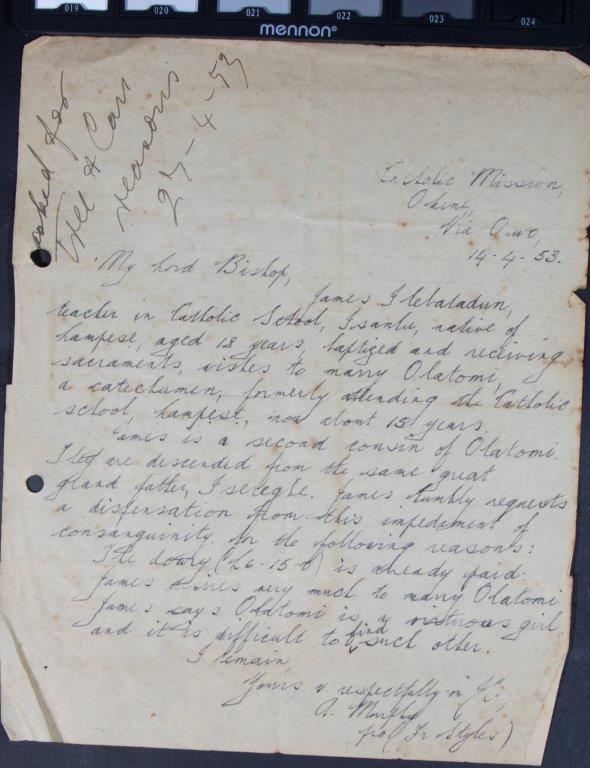 019 020 021 022 023 024
mennon®
asked for
Tree & Can
reasons
27-4-53
Catholic Mission,
Via Owo,
14-4-53.
My Lord Bishop,
James Ilebaladun,
teacher in Catholic School, Isanlu, native of
Kampese, aged 18 years, baptized and receiving
sacraments, wishes to marry Olatomi,
a catechumen, formerly attending the Catholic
school, Kampese, now about 15 years.
James is a second cousin of Olatomi.
They are descended from the same great
grand father, Iselegbe. James humbly requests
a dispensation from this impediment of
consanguinity for the following reasons:
The dowry (£6-15-0) is already paid.
James desires very much to marry Olatomi
James says Olatomi is a virtuous girl
and it is difficult to find such other.
I remain,
Yours v. respectfully in J.C.,
A. Murphy
pro (Fr Styles)